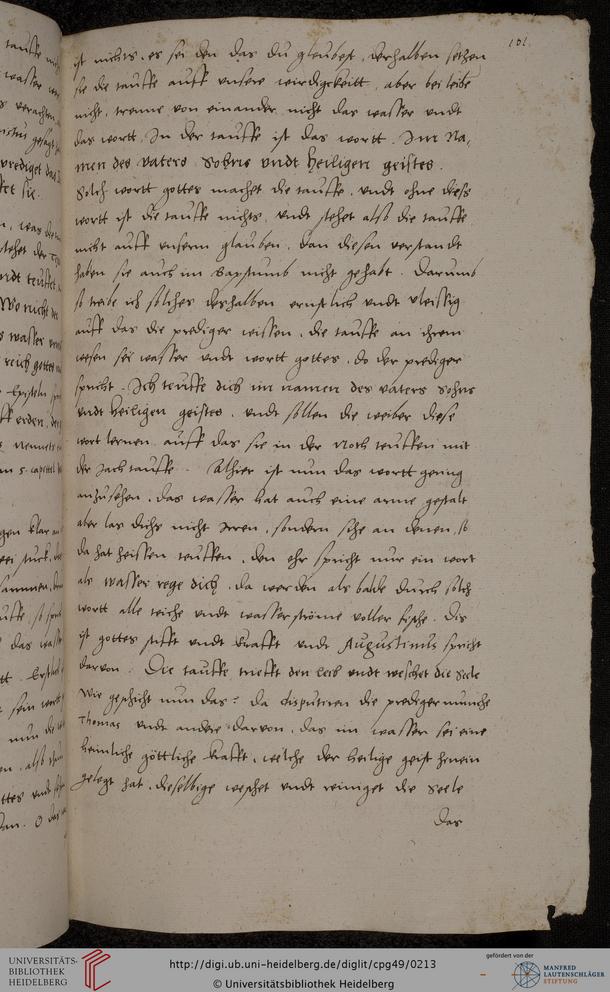 101.
ist nichts, es sei den das du glaubest, derhalben setzen
sie die tauffe auff unsere wirdigkeitt, aber bei leibe
nicht, trenne von einander nicht das wasser undt
das wortt. In der tauffe ist das wortt. Im Na-
men des vaters Sohns undt heiligen geistes.
Solch wortt gottes machet die tauffe, undt ohne dies
wortt ist die tauffe nichts, undt stehet also die tauffe
nicht auff unserm glauben, dan diesen verstandt
haben sie auch im Bapstumb nicht gehabt. Darumb
so treibe ich solches deshalben ernstlich undt vleissig
auff das die prediger wissen, die tauffe an ihrem
wesen sei wasser undt wortt gottes, do der prediger
spricht. Ich teuffe dich im namen des vaters sohns
undt heiligen geistes, undt sollen die weiber diese
wort lernen, auff das sie in der noth teuffen mit
der Jach tauffe. Alhier ist nun das wortt gering
anzusehen, das wasser hat auch eine arme gestalt
aber las dichs nicht Irren, sondern sihe an denen, so
da hat heissen teuffen, den ehr spricht nur ein wort
als wasser rege dich, da werden als balde durch solch
wortt alle teiche undt wasserströme voller fische. Dis
ist gottes stifft undt krafft undt Augustinus spricht
darvon. Die tauffe triefft den leib undt weschet die Seele
Wie geschicht nun das? da disputiren die prediger münche
Thomas undt andere darvon, das im wasser sei eine
heimliche göttliche krafft, welche der heilige geist hinein
gelegt hat, dieselbige weschet undt reiniget die Seele
das
UNIVERSITÄTS-
BIBLIOTHEK
HEIDELBERG
http://digi.ub.uni-heidelberg.de/diglit/cpg49/0213
© Universitätsbibliothek Heidelberg
gefördert von der
MANFRED
LAUTENSCHLÄGER
STIFTUNG